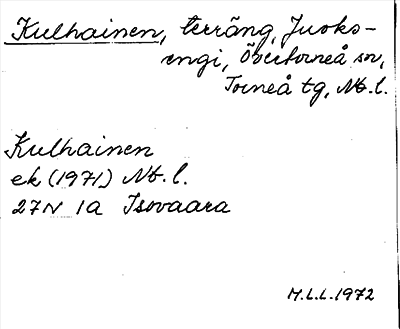 Kulhainen, terräng, Juoks-
engi, Övertorneå sn,
Torneå tg, Nb. l.
Kulhainen
ek (1971) Nb. l.
27N 1a Isovaara
M.L.L. 1972